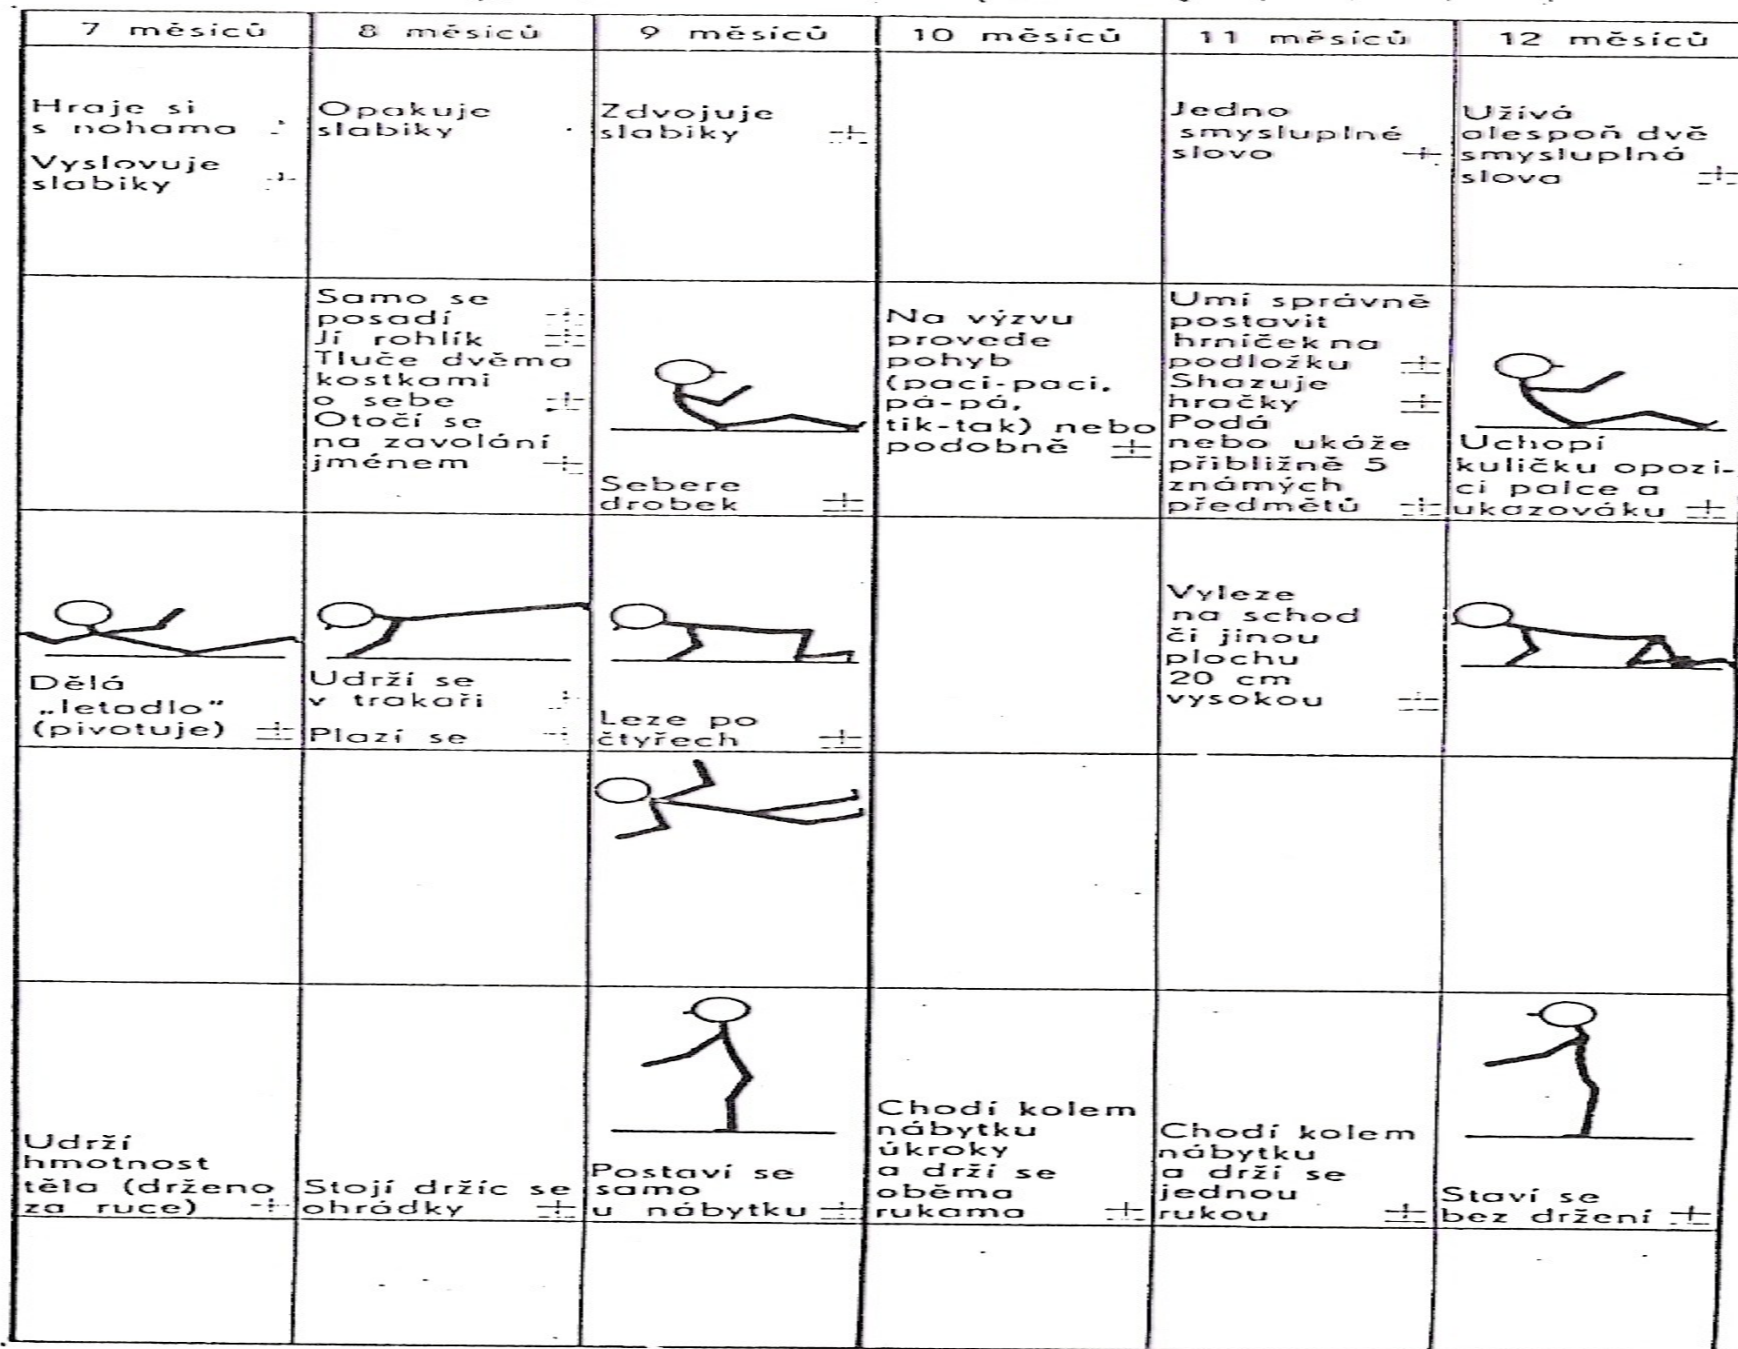 7 měsíců
8 měsíců
9 měsíců
10 měsíců
11 měsíců
12 měsíců
Hraje si
s nohama
Vyslovuje
slabiky
Opakuje
slabiky
Zdvojuje
slabiky
Jedno
smysluplné
slovo
Užívá
alespoň dvě
smysluplná
slova
Samo se
posadí
Jí rohlík
Tluče dvěma
kostkami
o sebe
Otočí se
na zavolání
jménem
Sebere
drobek
Na výzvu
provede
pohyb
(paci-paci,
pá-pá,
tik-tak) nebo
podobně
Umí správně
postavit
hrníček na
podložku
Shazuje
hračky
Podá
nebo ukáže
přibližně 5
známých
předmětů
Uchopí
kuličku opozi-
ci palce a
ukazováku
Dělá
„letadlo“
(pivotuje)
Udrží se
v trakaři
Plazí se
Leze po
čtyřech
Vyleze
na schod
či jinou
plochu
20 cm
vysokou
Udrží
hmotnost
těla (drženo
za ruce)
Stojí držíc se
ohrádky
Postaví se
samo
u nábytku
Chodí kolem
nábytku
úkroky
a drží se
oběma
rukama
Chodí kolem
nábytku
a drží se
jednou
rukou
Staví se
bez držení